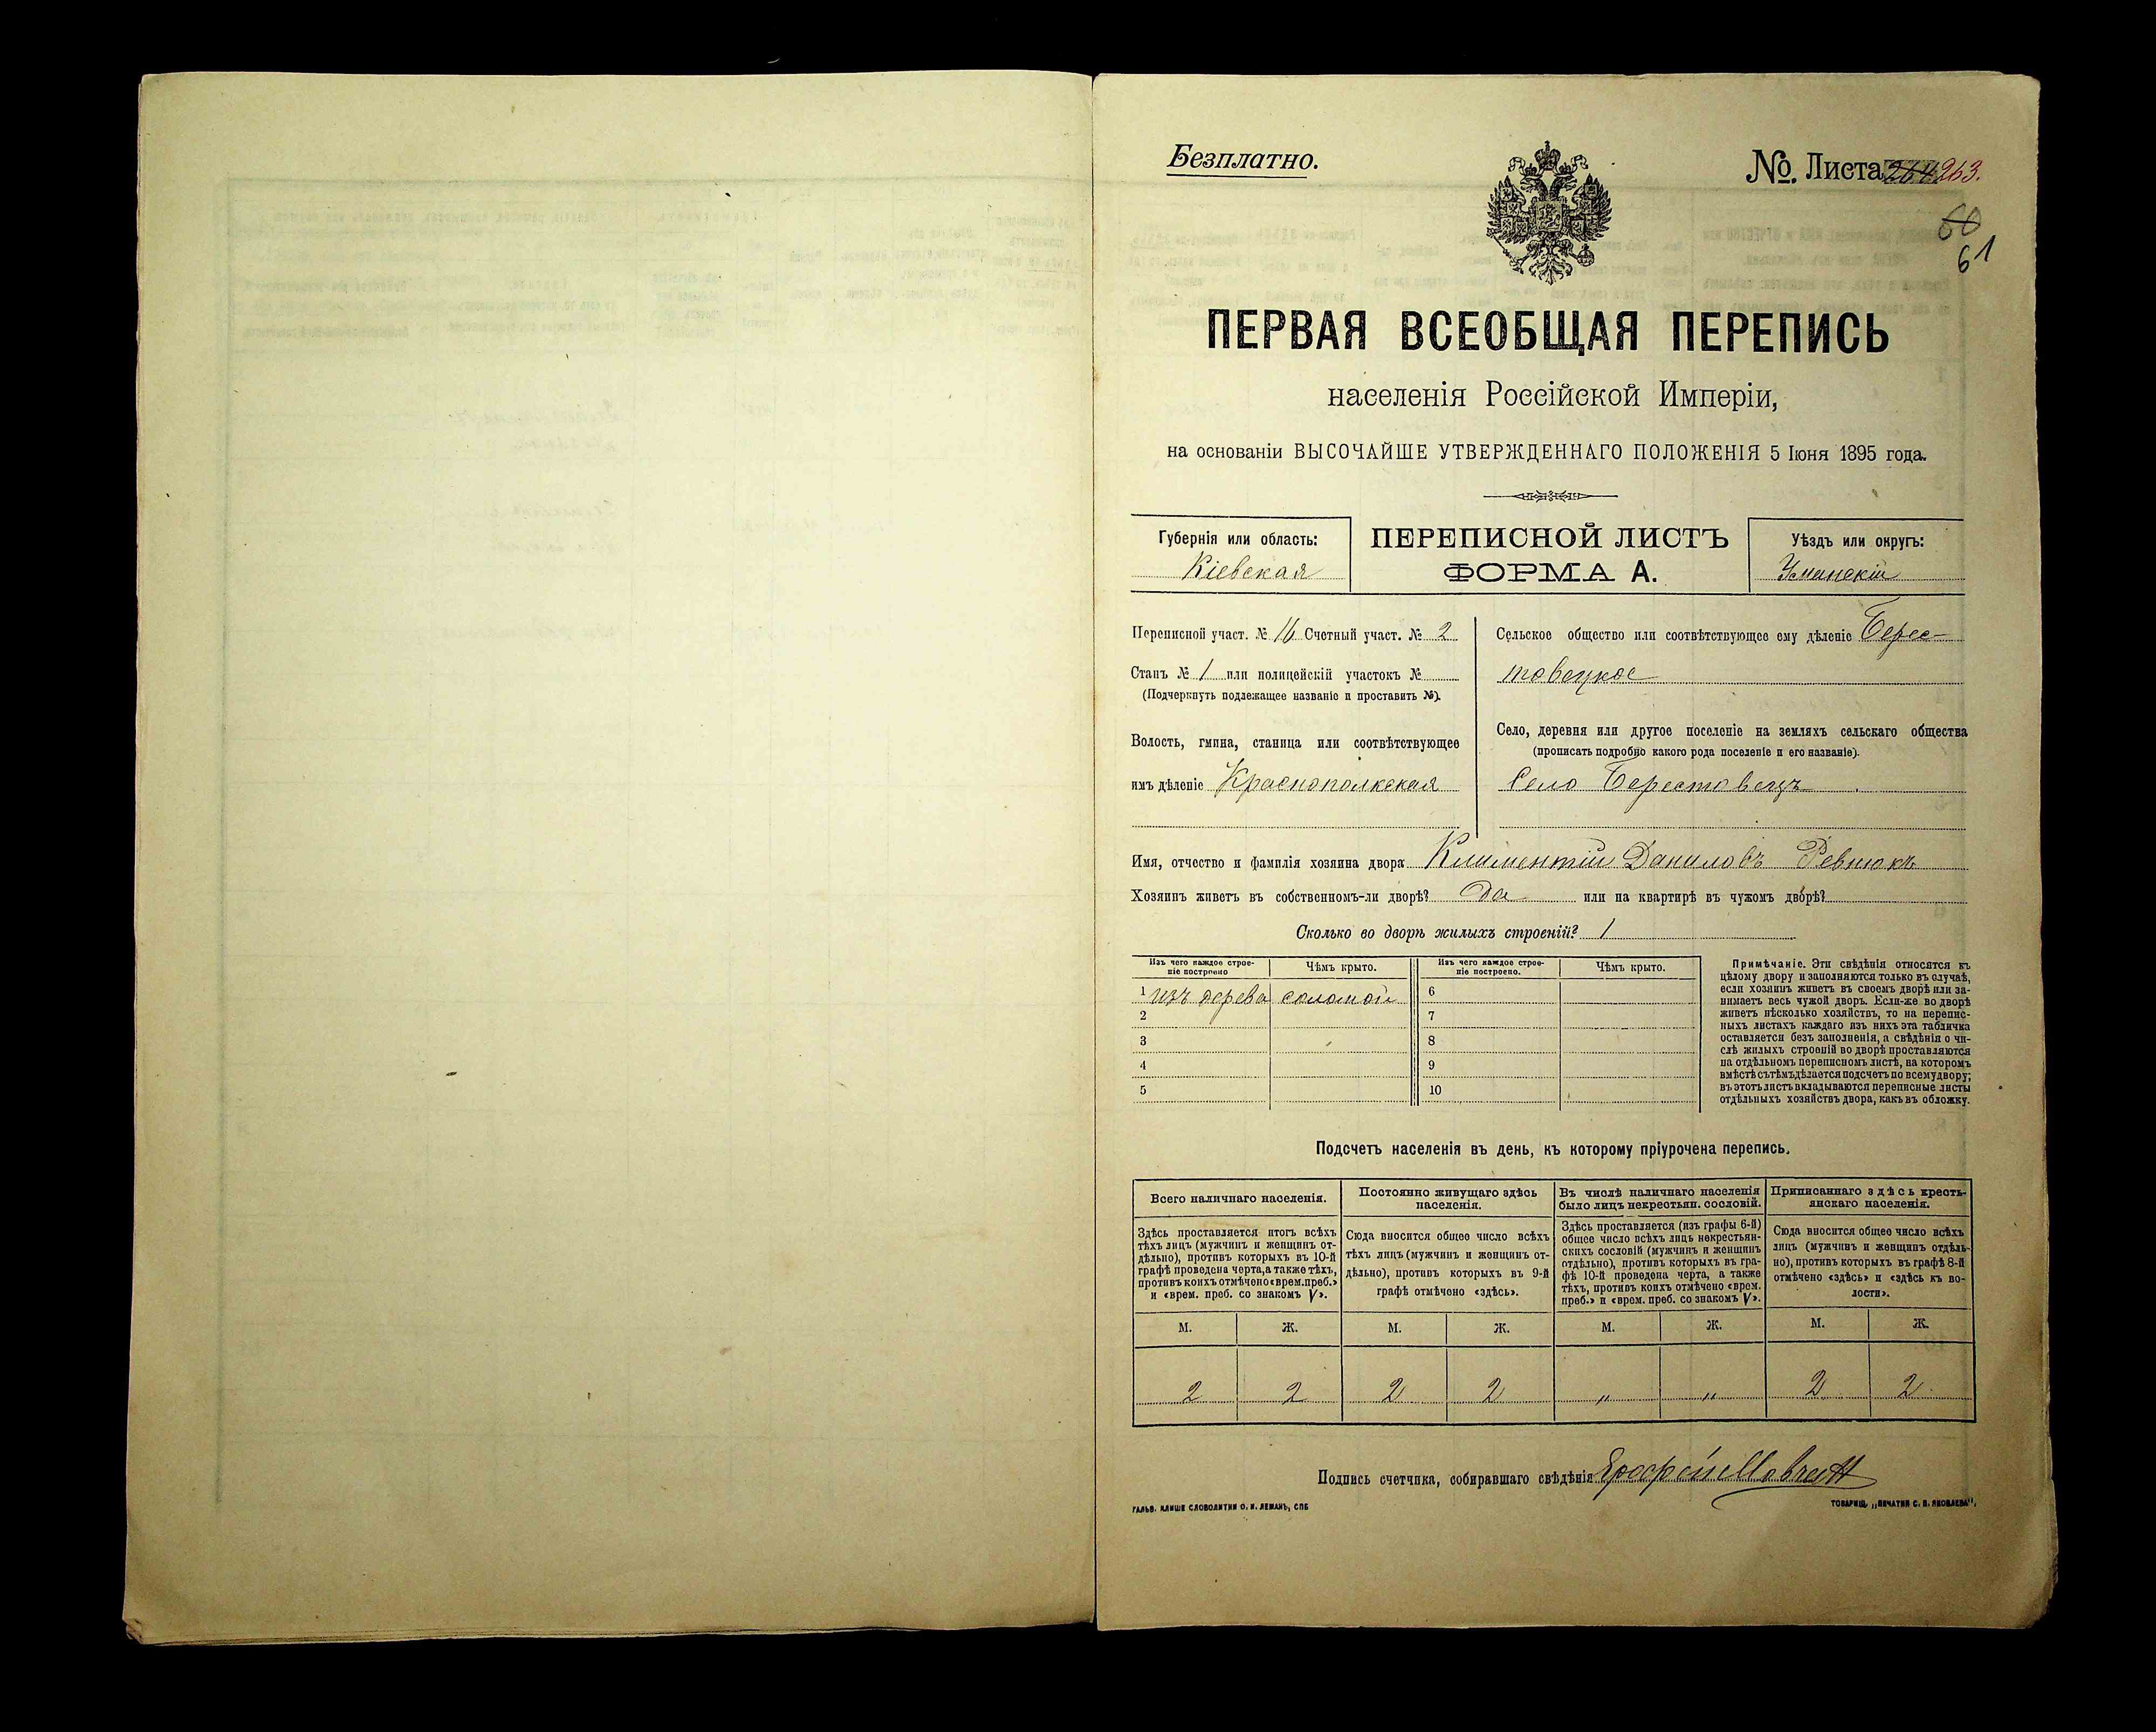 Безплатно.
No. Листа 264 263.
60
61
ПЕРВАЯ ВСЕОБЩАЯ ПЕРЕПИСЬ
населенія Россійской Имперіи,
на основаніи ВЫСОЧАЙШЕ УТВЕРЖДЕННАГО ПОЛОЖЕНІЯ 5 Іюня 1895 года.
Губернія или область:
Кіевская
ПЕРЕПИСНОЙ ЛИСТЪ
ФОРМА А.
Уѣздъ или округъ:
Уманскій
Переписной участ. № 16 Счетный участ. № 2
Станъ № 1 или полицейскій участокъ №
(Подчеркнуть подлежащее названіе и проставить №).
Волость, гмина, станица или соотвѣтствующее
имъ дѣленіе Краснополкская
Сельское общество или соотвѣтствующее ему дѣленіе Берес-
товецкое
Село, деревня или другое поселеніе на земляхъ сельскаго общества
(прописать подробно какого рода поселеніе и его названіе).
Село Берестовецъ
Имя, отчество и фамилія хозяина двора Климентій Даниловъ Ревнюкъ
Хозяинъ живетъ въ собственномъ-ли дворѣ? Да или на квартирѣ въ чужомъ дворѣ?
Сколько во дворѣ жилыхъ строеній? 1
Изъ чего каждое строе-
ніе построено
Чѣмъ крыто.
Изъ чего каждое строе-
ніе построено.
Чѣмъ крыто.
1 изъ дерева соломой 6
2 7
3 8
4 9
5 10
Примѣчаніе. Эти свѣдѣнія относятся къ
цѣлому двору и заполняются только въ случаѣ,
если хозяинъ живетъ въ своемъ дворѣ или за-
нимаетъ весь чужой дворъ. Если-же во дворѣ
живетъ нѣсколько хозяйствъ, то на перепис-
ныхъ листахъ каждаго изъ нихъ эта табличка
оставляется безъ заполненія, а свѣдѣнія о чи-
слѣ жилыхъ строеній во дворѣ проставляются
на отдѣльномъ переписномъ листѣ, на которомъ
вмѣстѣ съ тѣмъ дѣлается подсчетъ по всему двору;
въ этотъ листъ вкладываются переписные листы
отдѣльныхъ хозяйствъ двора, какъ въ обложку.
Подсчетъ населенія въ день, къ которому пріурочена перепись.
Всего наличнаго населенія.
Здѣсь проставляется итогъ всѣхъ
тѣхъ лицъ (мужчинъ и женщинъ от-
дѣльно), противъ которыхъ въ 10-й
графѣ проведена черта, а также тѣхъ,
противъ коихъ отмѣчено «врем. преб.»
и «врем. преб. со знакомъ V».
Постоянно живущаго здѣсь
населенія.
Сюда вносится общее число всѣхъ
тѣхъ лицъ (мужчинъ и женщинъ от-
дѣльно), противъ которыхъ въ 9-й
графѣ отмѣчено «здѣсь».
Въ числѣ наличнаго населенія
было лицъ некрестьян. сословій.
Здѣсь проставляется (изъ графы 6-й)
общее число всѣхъ лицъ некрестьян-
скихъ сословій (мужчинъ и женщинъ
отдѣльно), противъ которыхъ въ гра-
фѣ 10-й проведена черта, а также
тѣхъ, противъ коихъ отмѣчено «врем.
преб.» и «врем. преб. со знакомъ V».
Приписаннаго здѣсь кресть-
янскаго населенія.
Сюда вносится общее число всѣхъ
лицъ (мужчинъ и женщинъ отдѣль-
но), противъ которыхъ въ графѣ 8-й
отмѣчено «здѣсь» и «здѣсь къ во-
лости».
М. Ж. М. Ж. М. Ж. М. Ж.
2 2 2 2 „ „ 2 2
Подпись счетчика, собиравшаго свѣдѣнія
ГАЛЬВ. КЛИШЕ СЛОВОЛИТНИ О. И. ЛЕМАНЪ, СПБ
ТОВАРИЩ. „ПЕЧАТНЯ С. П. ЯКОВЛЕВА",